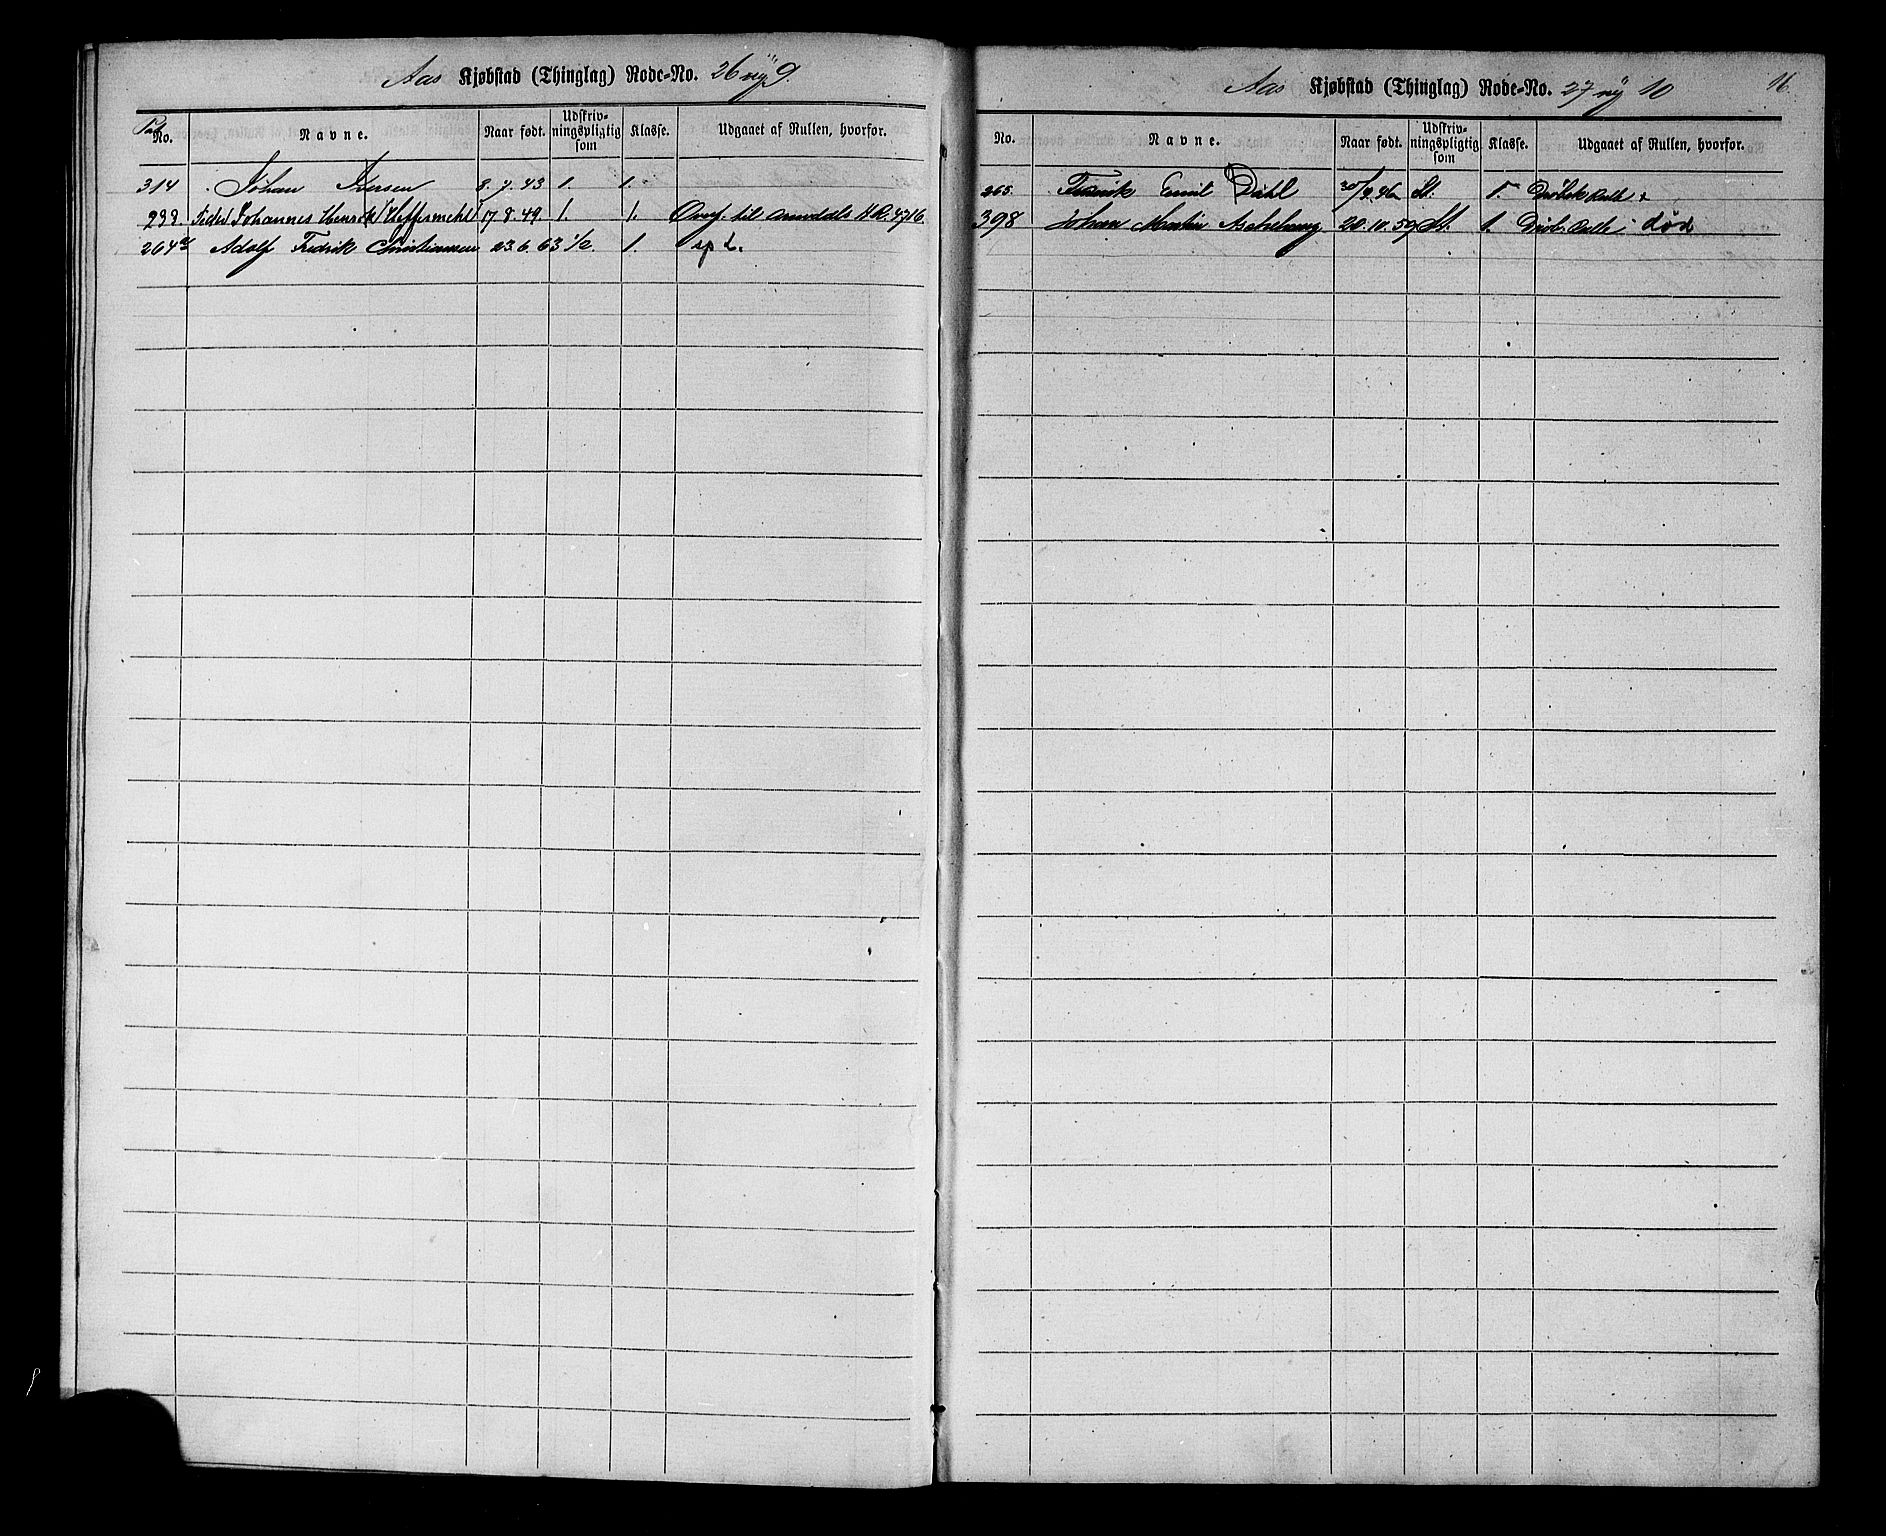 Aas Kjøbstad (Thinglag) Rode-No. 26 ny 9.
No. Navne. Naar født. Udskriv-ningspligtig som Klasse. Udgaaet af Rullen, hvorfor.
314 Johan Iversen 8.7.43 1. 1.
232. Johannes Henrik Heffermehl 17.8.49 1. 1. Overf. til Arendals H.R. 4716
264 Adolf Fredrik Christiansen 23.6.63 1/2. 1.
Aas Kjøbstad (Thinglag) Rode-No. 27 ny 10
16.
No. Navne. Naar født. Udskriv-ningspligtig som Klasse. Udgaaet af Rullen, hvorfor.
265. Fredrik Emil Dahl 30/9.46 St. 1. Drøbak Rulle
398 Johan Martin Aschehaug 20.10.59 St. 1. Drøb. Rulle død